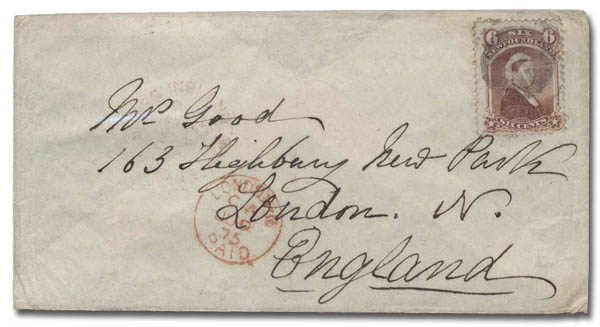 6 SIX 6
NEWFOUNDLAND
SIX CENTS
Mrs Good
163 Highbury New Park
London. N.
England
LONDON
PAID